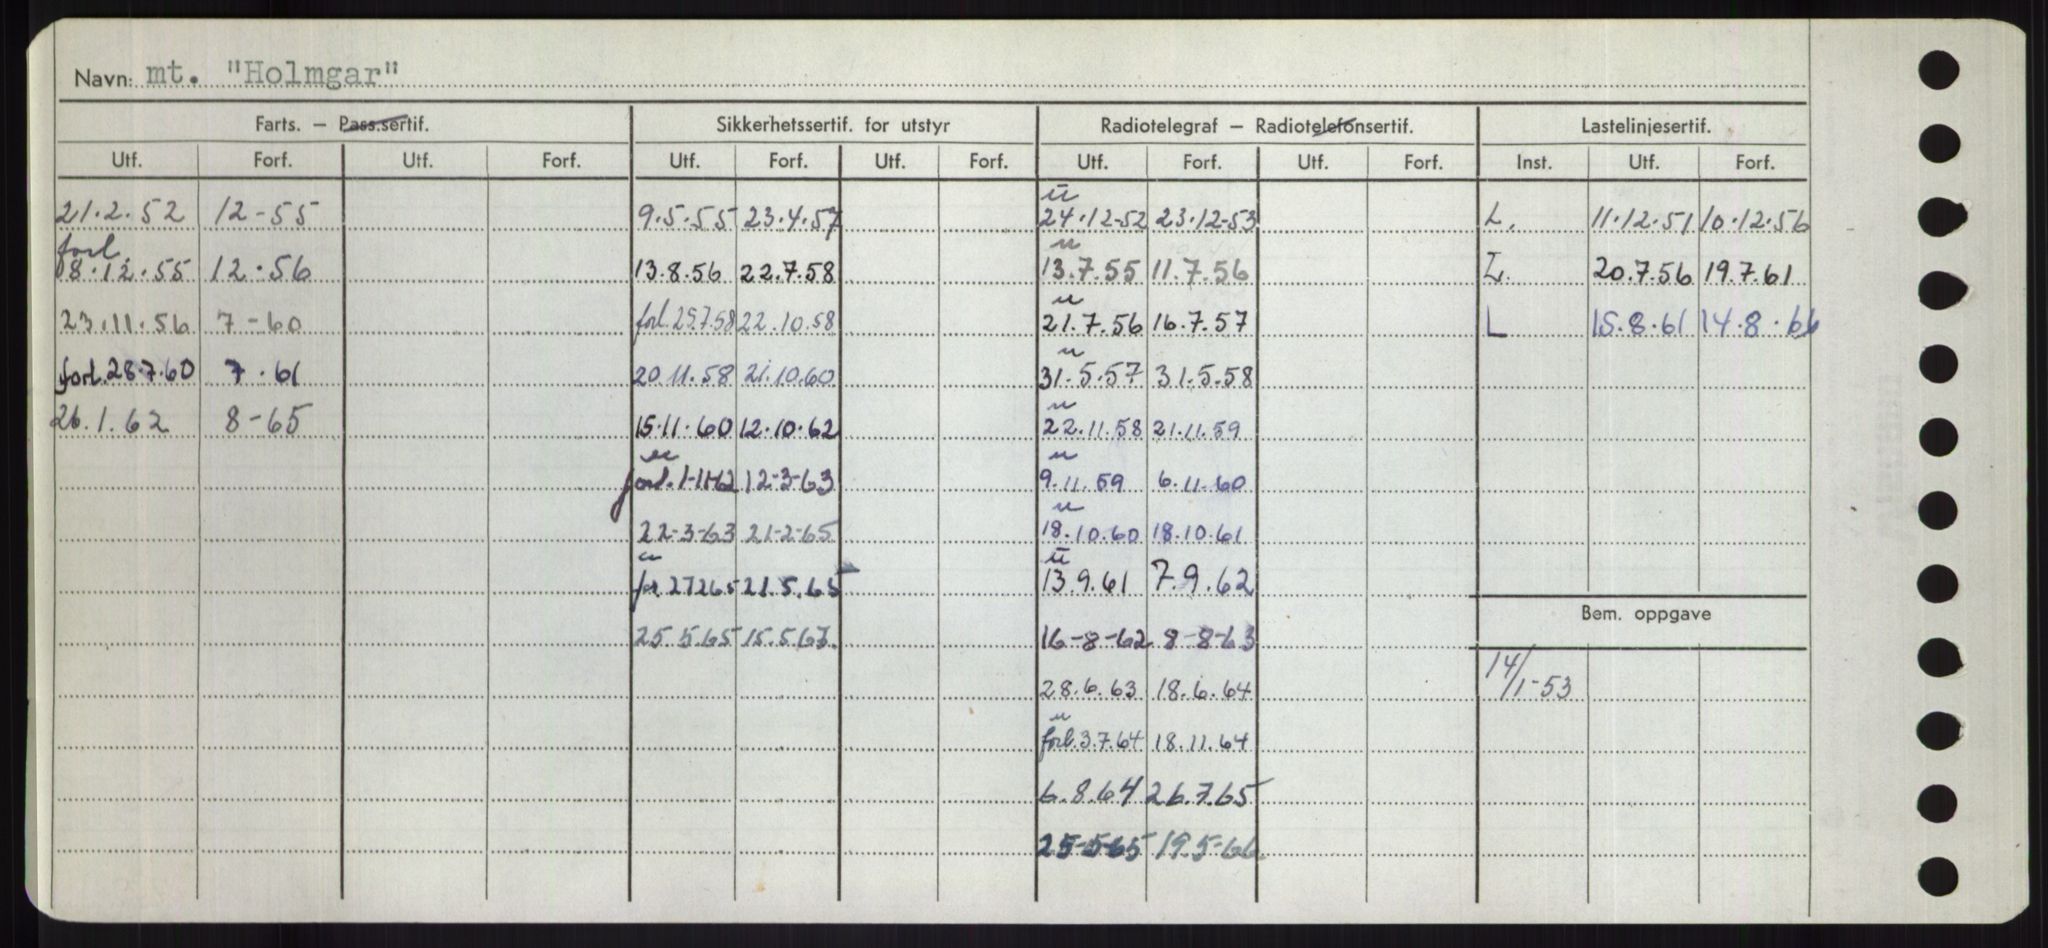 Navn: mt. "Holmgar"
Farts. – Pass.sertif. Sikkerhetssertif. for utstyr Radiotelegraf – Radiotelefonsertif. Lastelinjesertif.
Utf. Forf. Utf. Forf. Utf. Forf. Utf. Forf. Utf. Forf. Utf. Forf. Inst. Utf. Forf.
u
21.2.52 12-55 9.5.55 23.4.57 24.12-52 23.12-53 L. 11.12.51 10.12.56
forl. u
18.12.55 12.56 13.8.56 22.7.58 13.7.55 11.7.56 L. 20.7.56 19.7.61
u
23.11.56 7-60 forl. 29.7.58 22.10.58 21.7.56 16.7.57 L 15.8.61 14.8.66
u
forl. 28.7.60 7.61 20.11.58 21.10.60 31.5.57 31.5.58
u
26.1.62 8-65 15.11.60 12.10.62 22.11.58 21.11.59
u u
forl. 1-11-62 12-3-63 9.11.59 6.11.60
u
22-3-63 21-2-65 18.10.60 18.10.61
u u
for. 27265 21.5.65 13.9.61 7.9.62
Bem. oppgave
25.5.65 15.5.67. 16-8-62 8-8-63
14/1-53
28.6.63 18.6.64
u
forl. 3.7.64 18.11.64
6.8.64 26.7.65
25-5-65 19.5-66.